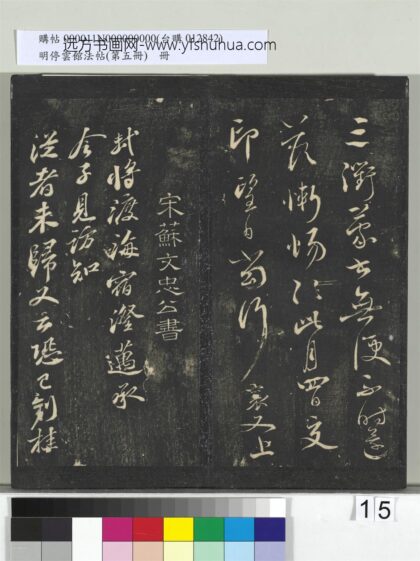 購帖 000011N000000000(台購 012842)
远方书画网-www.yfshuhua.com
明停雲館法帖(第五冊) 冊
三衢蒙書無便不時還
荅慚惕於此月四日交
印望日當行 襄又上
宋蘇文忠公書
軾將渡海宿澄邁承
令子見訪知
從者未歸又云恐已到桂
15